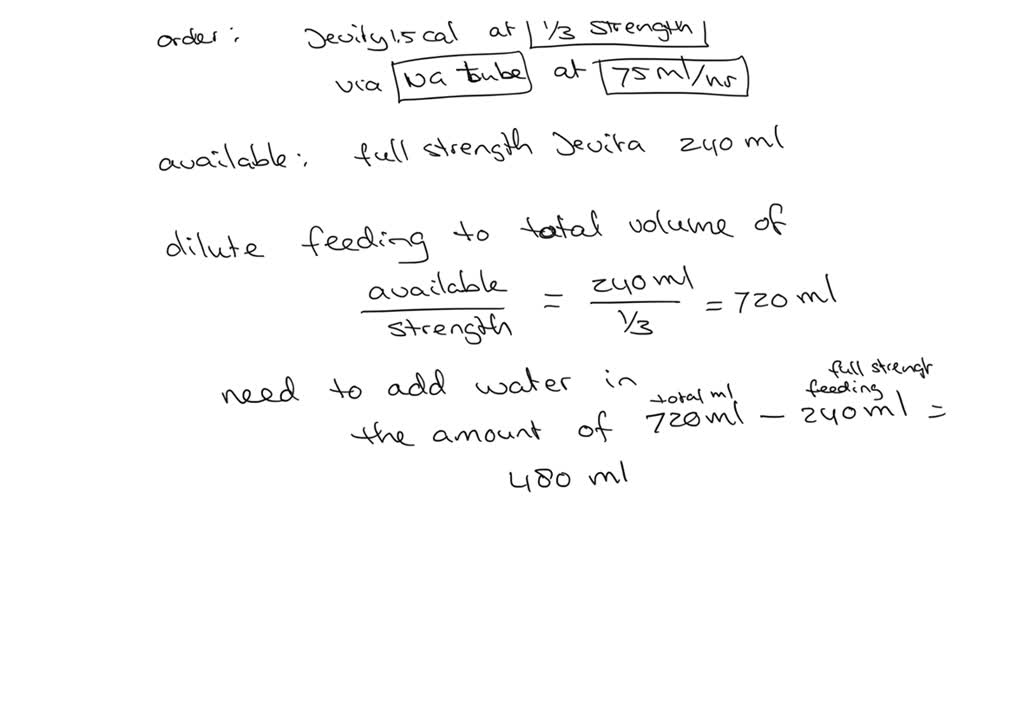 order: Jevity 1.5 cal at 1/3 strength
via NG tube at 75 ml/hr
available: full strength Jevita 240 ml
dilute feeding to total volume of
available / strength = 240 ml / 1/3 = 720 ml
need to add water in
the amount of total ml 720 ml - full strengt feeding 240 ml =
480 ml